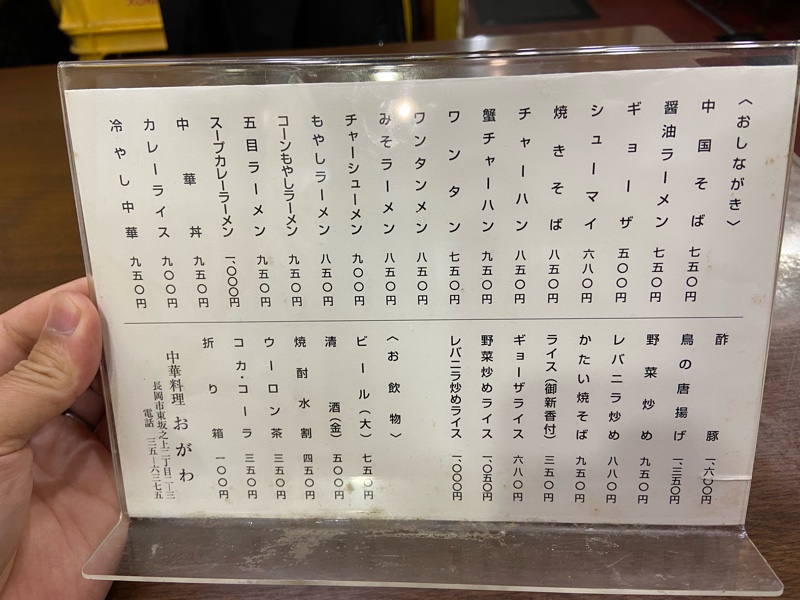 〈おしながき〉
中国そば 七五〇円
醤油ラーメン 七五〇円
ギョーザ 五〇〇円
シューマイ 六八〇円
焼きそば 八五〇円
チャーハン 八五〇円
蟹チャーハン 九五〇円
ワンタン 七五〇円
ワンタンメン 八五〇円
みそラーメン 八五〇円
チャーシューメン 九〇〇円
もやしラーメン 八五〇円
コーンもやしラーメン 九五〇円
五目ラーメン 九五〇円
スープカレーラーメン 一、〇〇〇円
中華丼 九五〇円
カレーライス 九〇〇円
冷やし中華 九五〇円
酢豚 一、六〇〇円
鳥の唐揚げ 一、三五〇円
野菜炒め 九五〇円
レバニラ炒め 八八〇円
かたい焼そば 九五〇円
ライス(御新香付) 三五〇円
ギョーザライス 六八〇円
野菜炒めライス 一、〇五〇円
レバニラ炒めライス 一、〇〇〇円
〈お飲物〉
ビール(大) 七五〇円
清酒(金) 五〇〇円
焼酎水割 四五〇円
ウーロン茶 三五〇円
コカ・コーラ 三五〇円
折り箱 一〇〇円
中華料理 おがわ
長岡市東坂之上二丁目二ー三
電話 三五ー六三七五